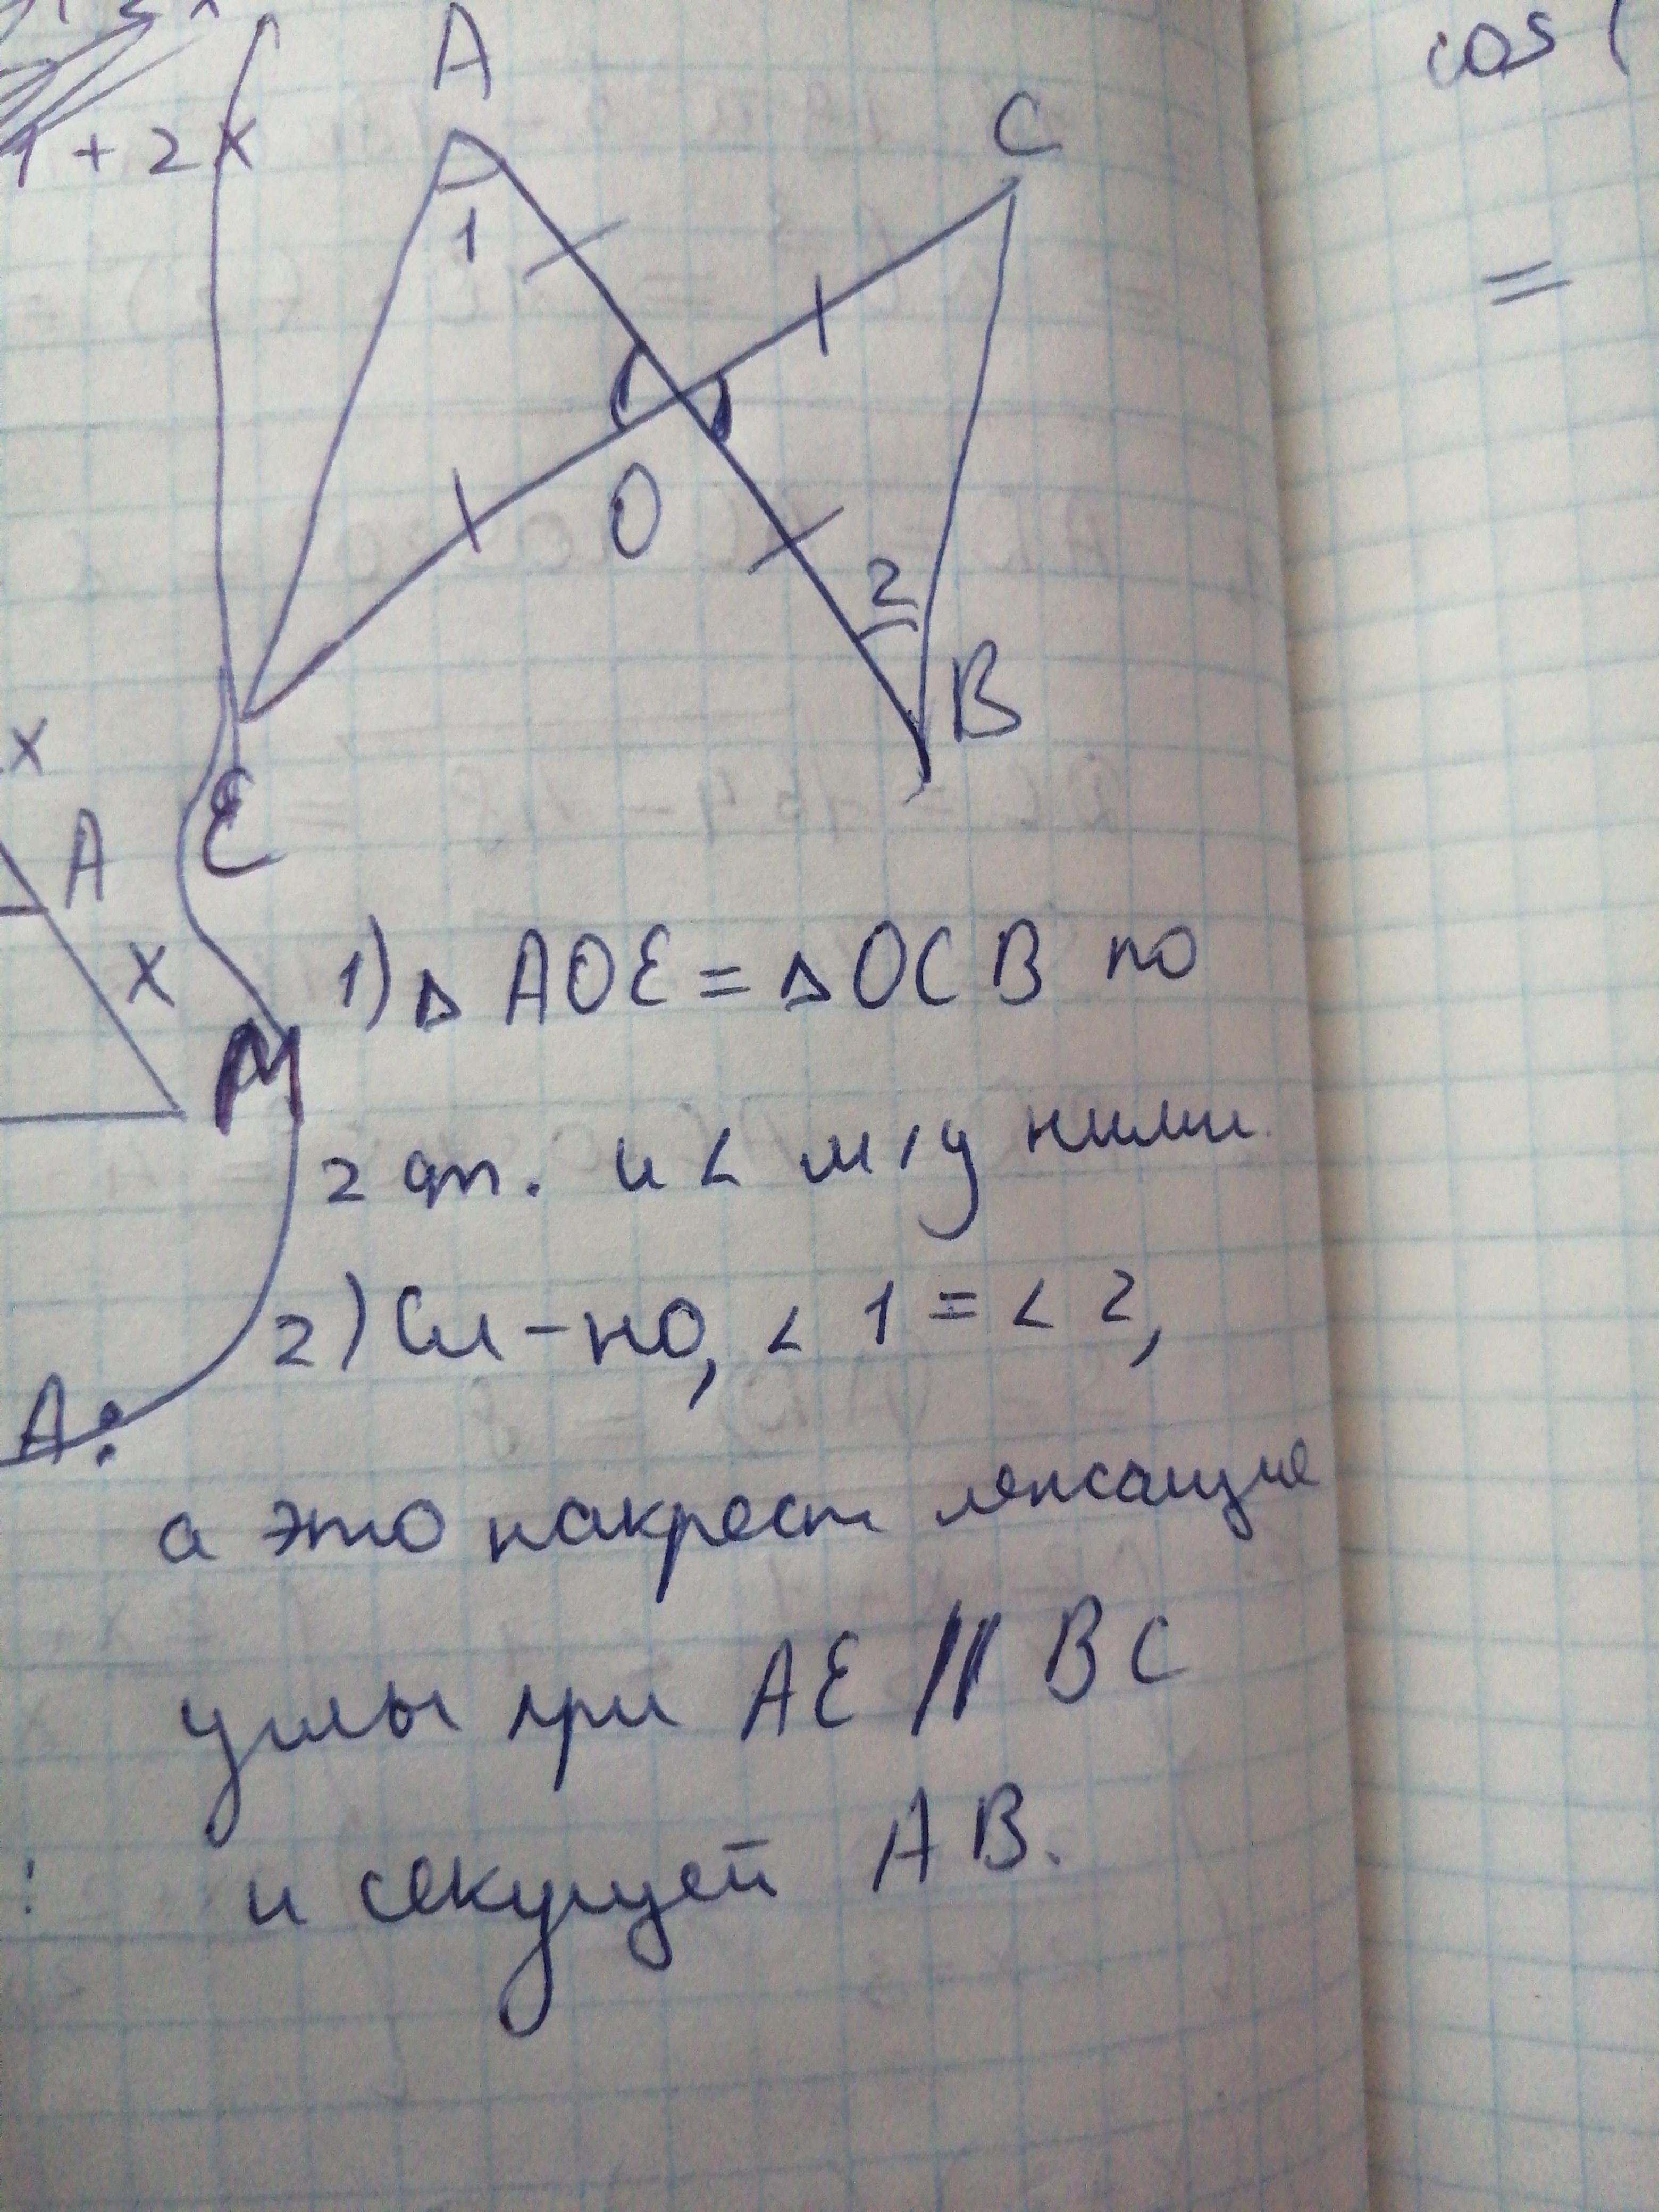 1 + 2x
A
C
cos (
1
=
O
2
B
E
x
A
x
M
1) △ AOE = △ OCB по
2 ст. и < м/у ними
2) Сл-но, < 1 = < 2,
A:
а это накрест лежащие
углы при AE || BC
и секущей AB.